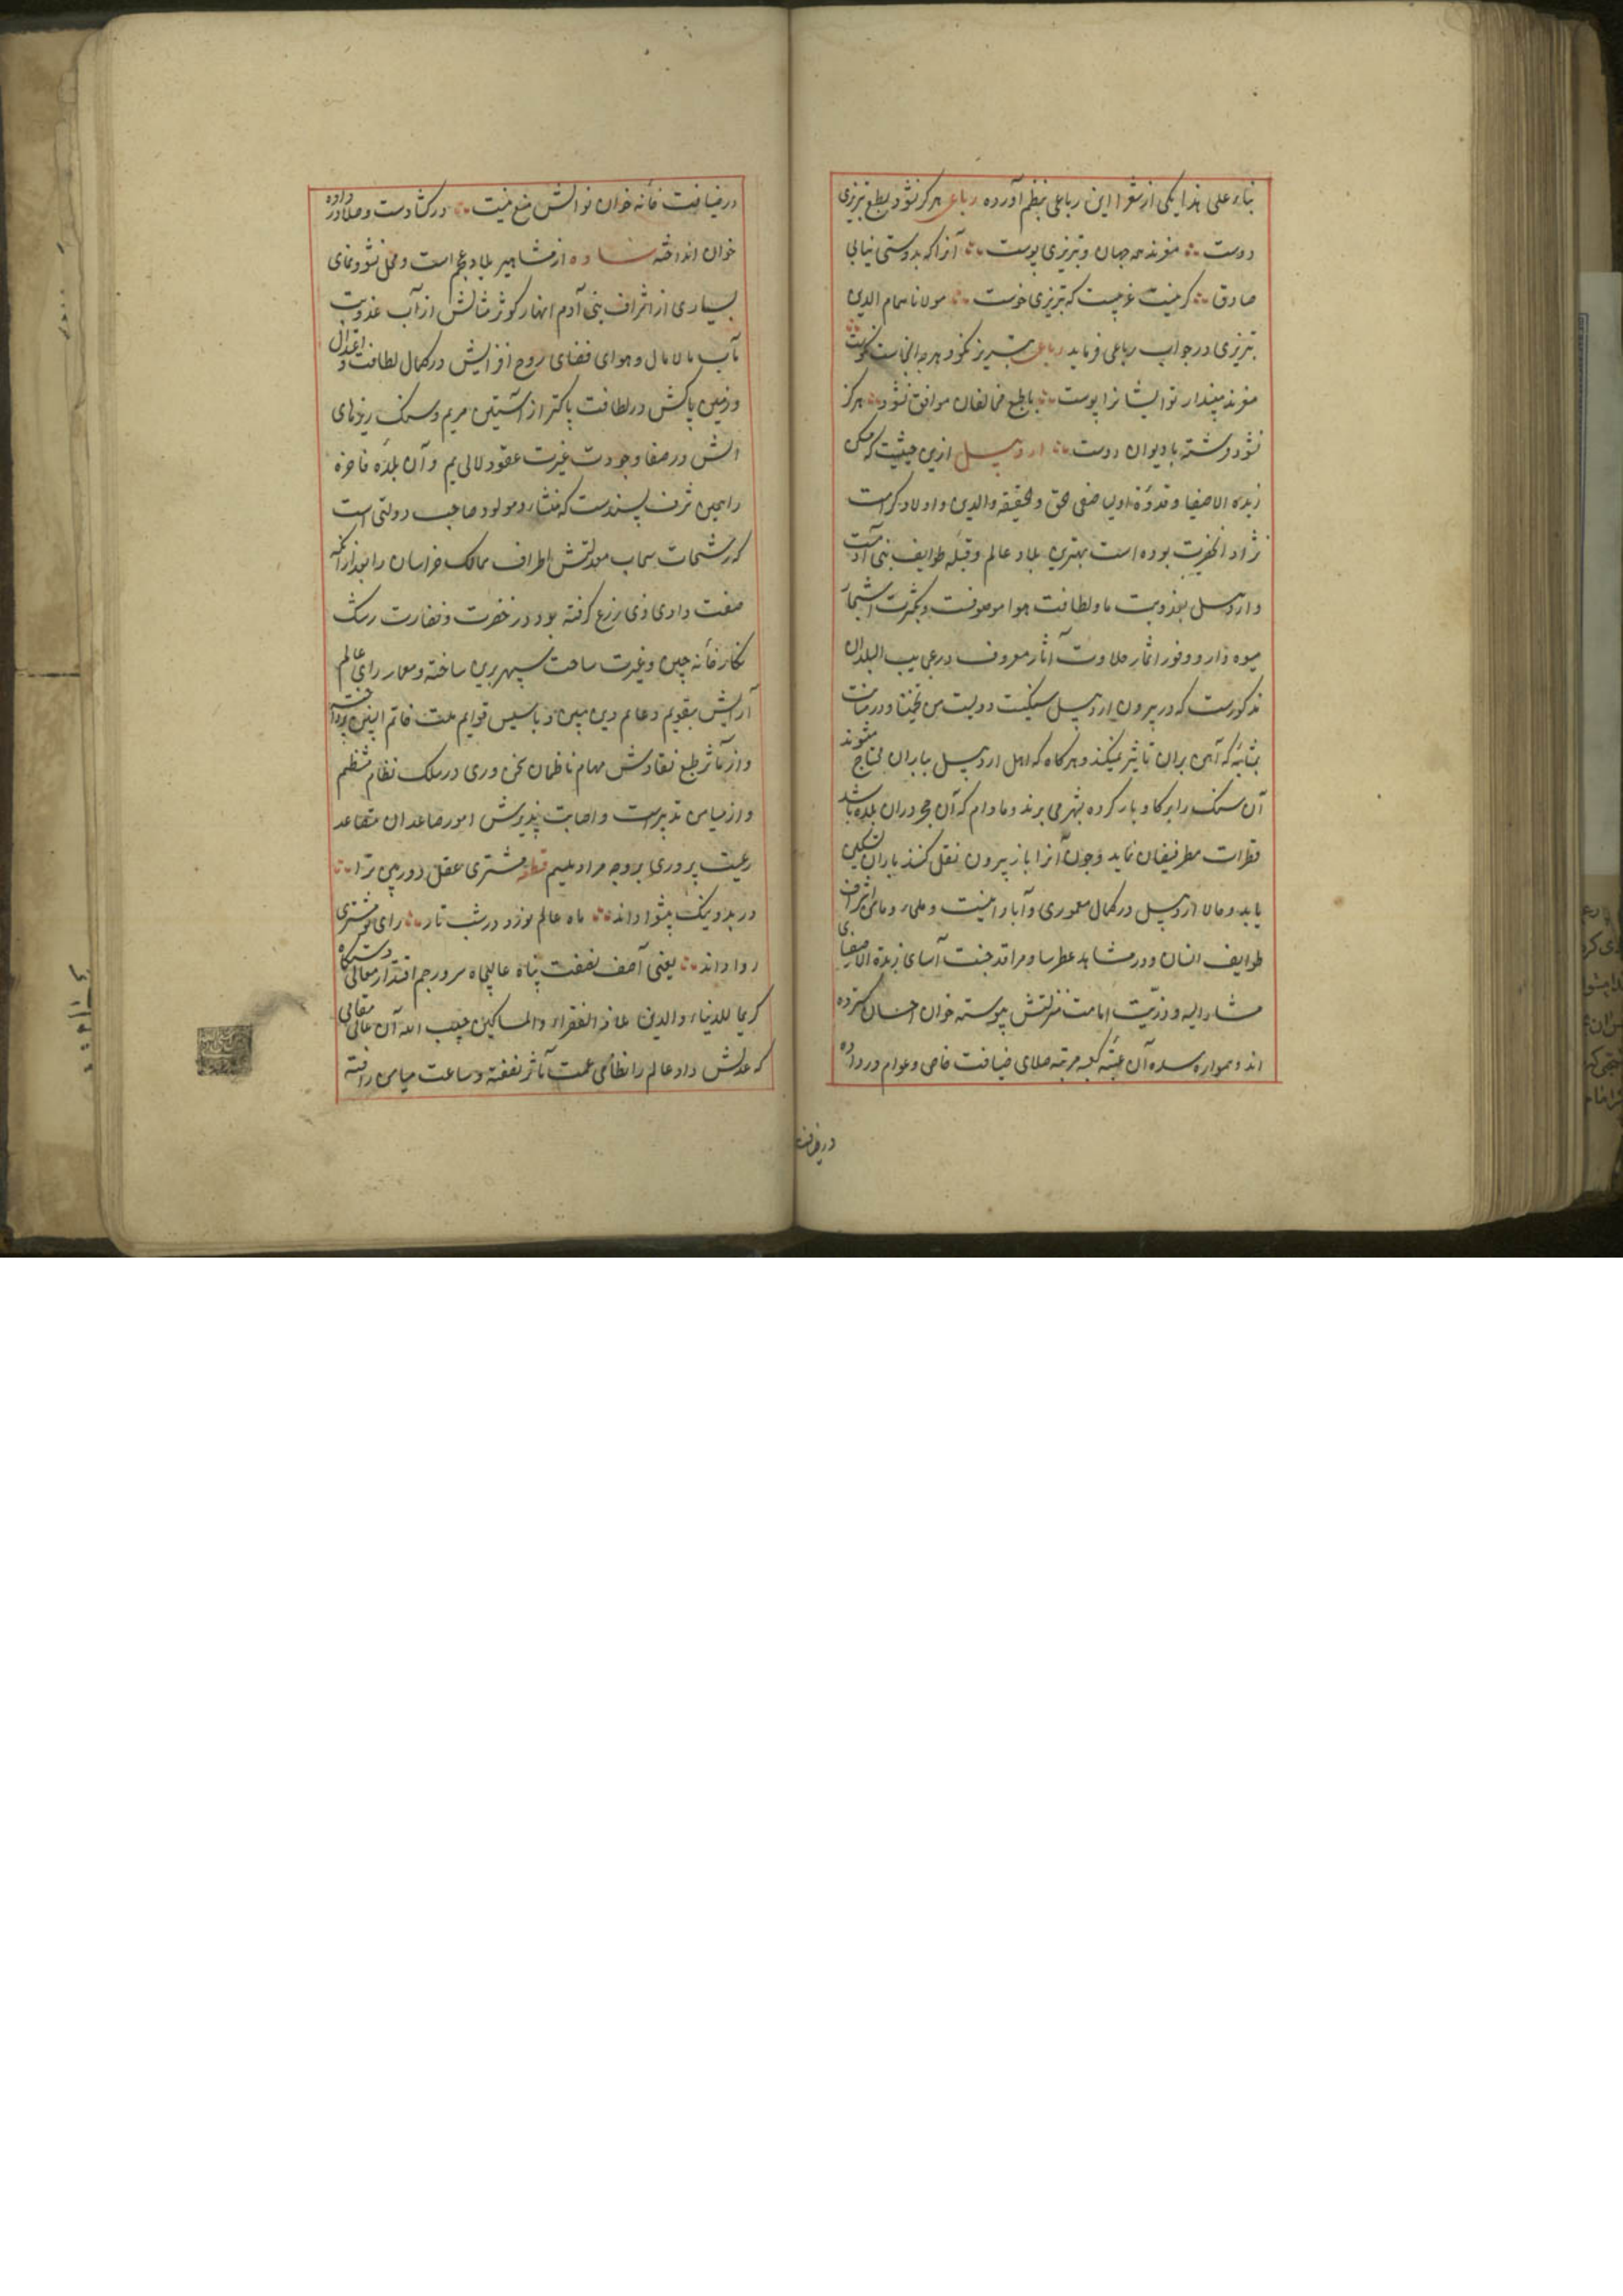 بناء علی هذا یکی از شعرا این رباعی بنظم آورده رباعی هرگز نشود بطبع تبریزی
دوست مغزند همه جهان و تبریزی پوست آنرا که بدوستی نیابی
صادق گر نیست غریبست که تبریزی خوست مولانا همام الدین
تبریزی در جواب رباعی فرماید رباعی تبریز نکو و هرچه آنجاست نکوست
مغزند مپندار تو ایشانرا پوست با طبع مخالفان موافق نشود هرگز
نشود فرشته با دیوان دوست اردبیل ازین حیثیت که مسکن
زبدة الاصفیا و قدوة اولیا صفی الحق و الحقیقة والدین و اولاد کرامت
نژاد آنحضرت بوده است بهترین بلاد عالم و قبله طوایف بنی آدمست
و اردبیل بعذوبت ما و لطافت هوا موصوفست و بکثرت اشجار
میوه دار و وفور اثمار حلاوت آثار معروف در عجایب البلدان
مذکورست که در بیرون اردبیل سنگیست دویست من تخمینا و در متانت
بمثابه که آهن بران تاثیر نمیکند و هرگاه که اهل اردبیل بباران محتاج میشوند
آن سنگ را بر گاو بار کرده بشهر می برند و مادام که آن حجر دران بلده باشد
قطرات مطر فیضان نماید و چون آنرا باز بیرون نقل کنند باران تسکین
یابد و حالا اردبیل در کمال معموری و آبادانیست و ملجاء و مامن اشراف
طوایف انسان و در مشاهد عطرسا و مراقد جنت آسای زبدة الاصفیای
مشار الیه و ذریت امامت منزلتش پیوسته خوان احسان گسترده
اند و همواره سده آن عتبه کعبه مرتبه صلای ضیافت خاص و عوام در داده
در ضیافت
در ضیافت خانه خوان نوالش منع نیست در گشادست و صلا در داده
خوان انداخته ساوه از مشاهیر بلاد عجم است و محل نشو و نمای
بسیاری از اشراف بنی آدم انهار کوثر مثالش از آب عذوبت
مآب مالامال و هوای فضای روح افزایش در کمال لطافت و اعتدال
و زمین پاکش در لطافت پاکتر از آستین مریم و سنگ ریزهای
آتش در صفا و جودت غیرت عقود لالی یم و آن بلده فاخره
را همین شرف بسندست که منشا و مولود صاحب دولتی است
که رشحات سحاب معدلتش اطراف ممالک خراسان را بعد از آنکه
صفت وادی غیر ذی زرع گرفته بود در خضرت و نضارت رشک
نگارخانه چین و غیرت ساحت سپهر برین ساخته و معمار رای عالم
آرایش بتقویم دعایم دین مبین و تاسیس قوایم ملت خاتم النبیین پرداخته
و از مآثر طبع نقادش مهام ناظمان سخن وری در سلک نظام منتظم
و از میامن تدبیرست و اصابت پذیرش امور صاعدان مصاعد
رعیت پروری بروجه مراد ملتیم قطعه مشتری عقل دوربین ترا
در بد و نیک پیشوا داند ماه عالم فروز در شب تار رای تو مشتری
روا داند یعنی آصف نصفت پناه عالیجاه سرور جم اقتدار معالی دستگاه
کریما للدنیا و الدین ملاذ الفقراء و المساکین حبیب الله آن عالی مقامی
که عدلش داد عالم را نظامی عمت مآثر نصفته و ساعت میامن رافته